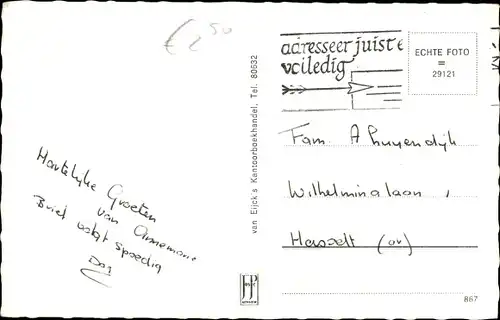 € 2 50
adresseer juist en
volledig
ECHTE FOTO
=
29121
van Eijck's Kantoorboekhandel, Tel. 80632
Hartelijke Groeten
van Annemarie
Brief volgt spoedig
Dag
Fam. A
Wilhelminalaan,
Hasselt (ov)
867